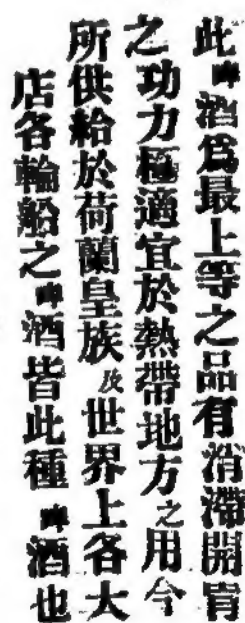 此啤酒爲最上等之品有消滯開胃
之功力極適宜於熱帶地方之用今
所供給於荷蘭皇族及世界上各大
店各輪船之啤酒皆此種啤酒也